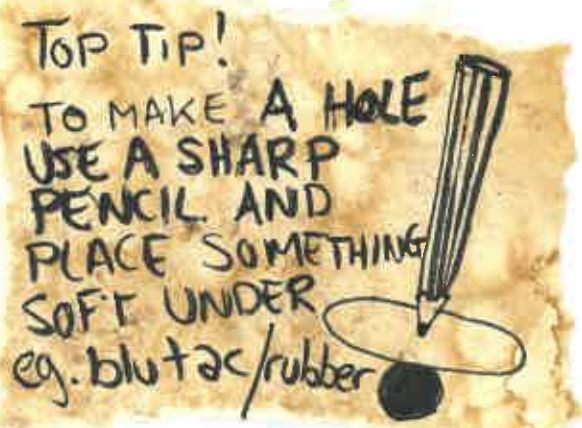 TOP TIP!
TO MAKE A HOLE
USE A SHARP
PENCIL AND
PLACE SOMETHING
SOFT UNDER
eg. blutac/rubber